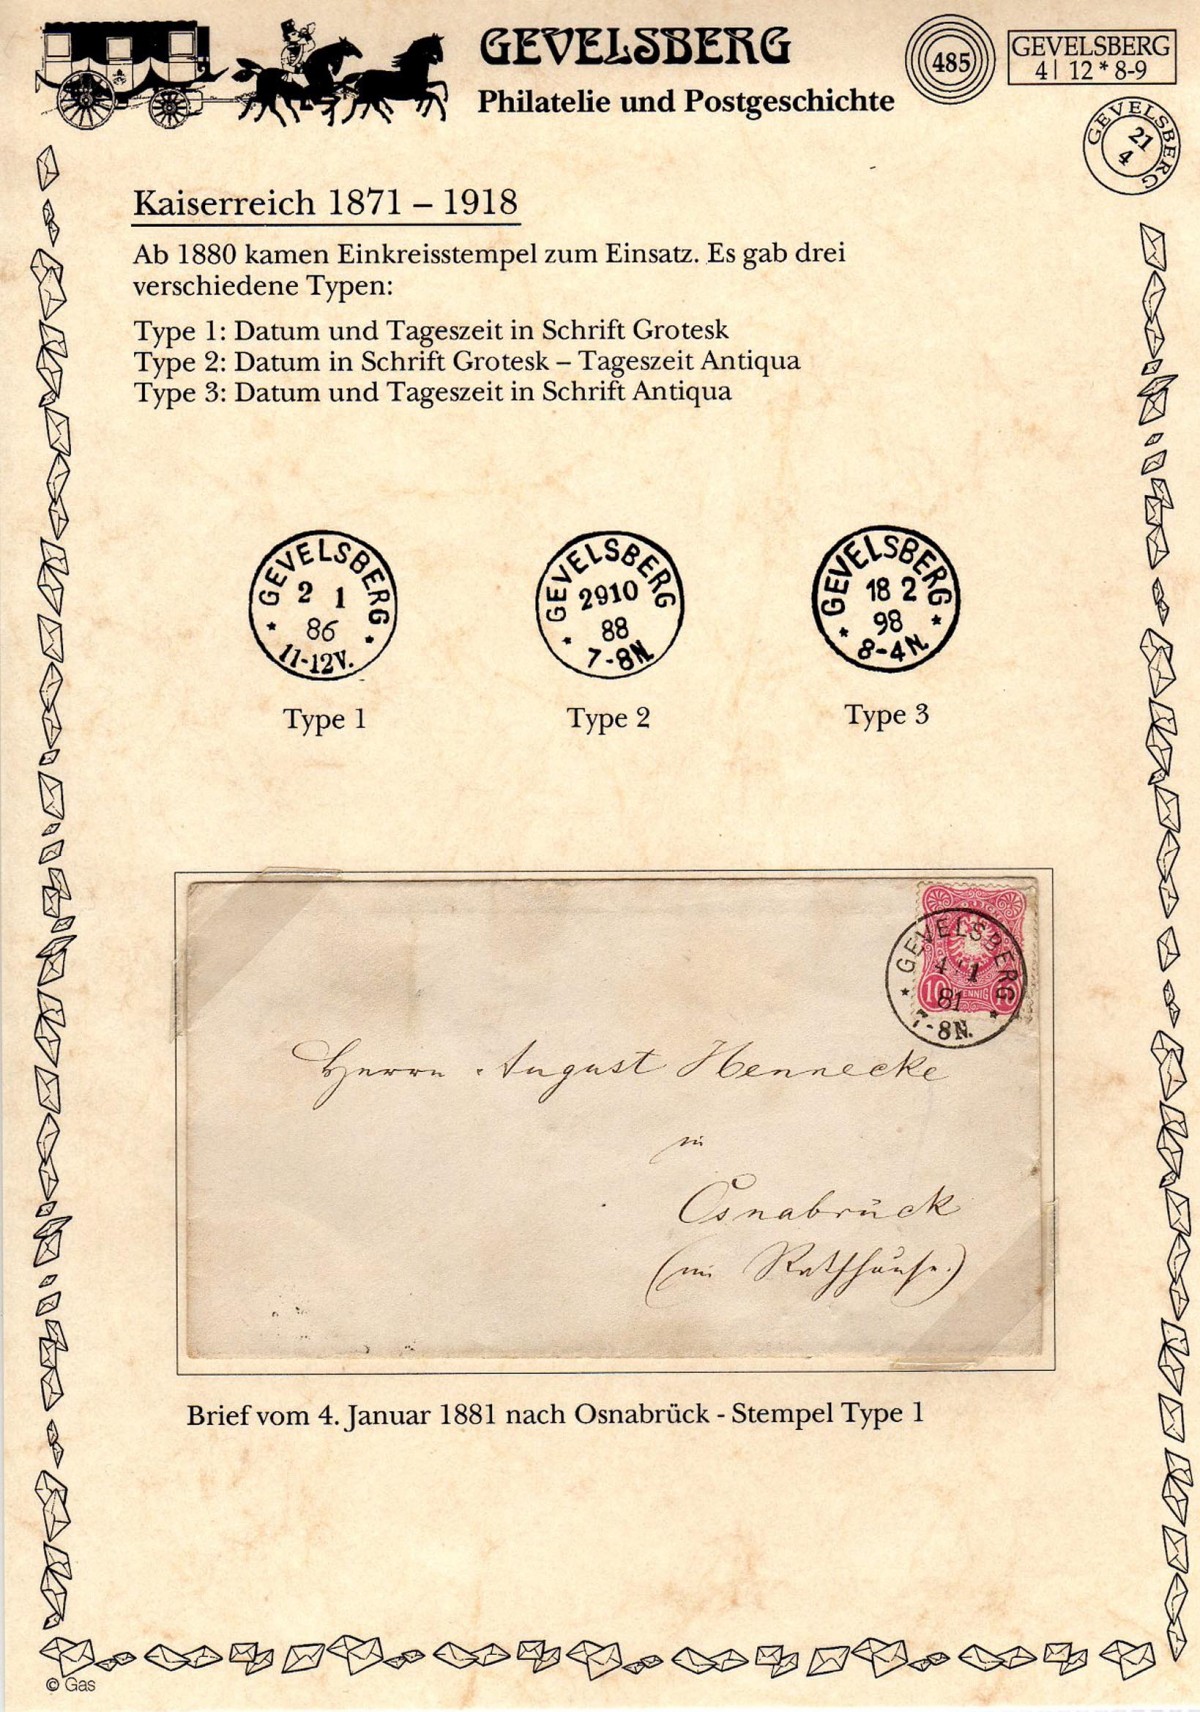 GEVELSBERG
Philatelie und Postgeschichte
485
GEVELSBERG
4| 12 * 8-9
GEVELSBERG
21
4
Kaiserreich 1871 – 1918
Ab 1880 kamen Einkreisstempel zum Einsatz. Es gab drei
verschiedene Typen:
Type 1: Datum und Tageszeit in Schrift Grotesk
Type 2: Datum in Schrift Grotesk – Tageszeit Antiqua
Type 3: Datum und Tageszeit in Schrift Antiqua
GEVELSBERG
2 1
86
* 11-12V. *
Type 1
GEVELSBERG
2910
88
* 7-8N.
Type 2
GEVELSBERG
18 2
98
* 8-4N. *
Type 3
GEVELSBERG
4 1
81
* 7-8N. *
10 PFENNIG 10
Herrn August Hennecke
in
Osnabrück
(im Rathhause.)
Brief vom 4. Januar 1881 nach Osnabrück - Stempel Type 1
© Gas